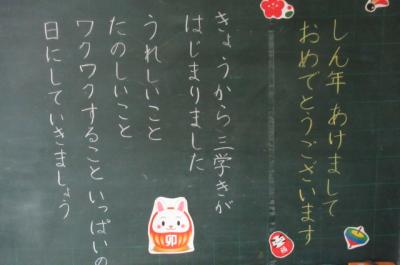 しん年 あけまして
おめでとうございます
きょうから三学きが
はじまりました
うれしいこと
たのしいこと
ワクワクすること いっぱいの
日にしていきましょう
卯